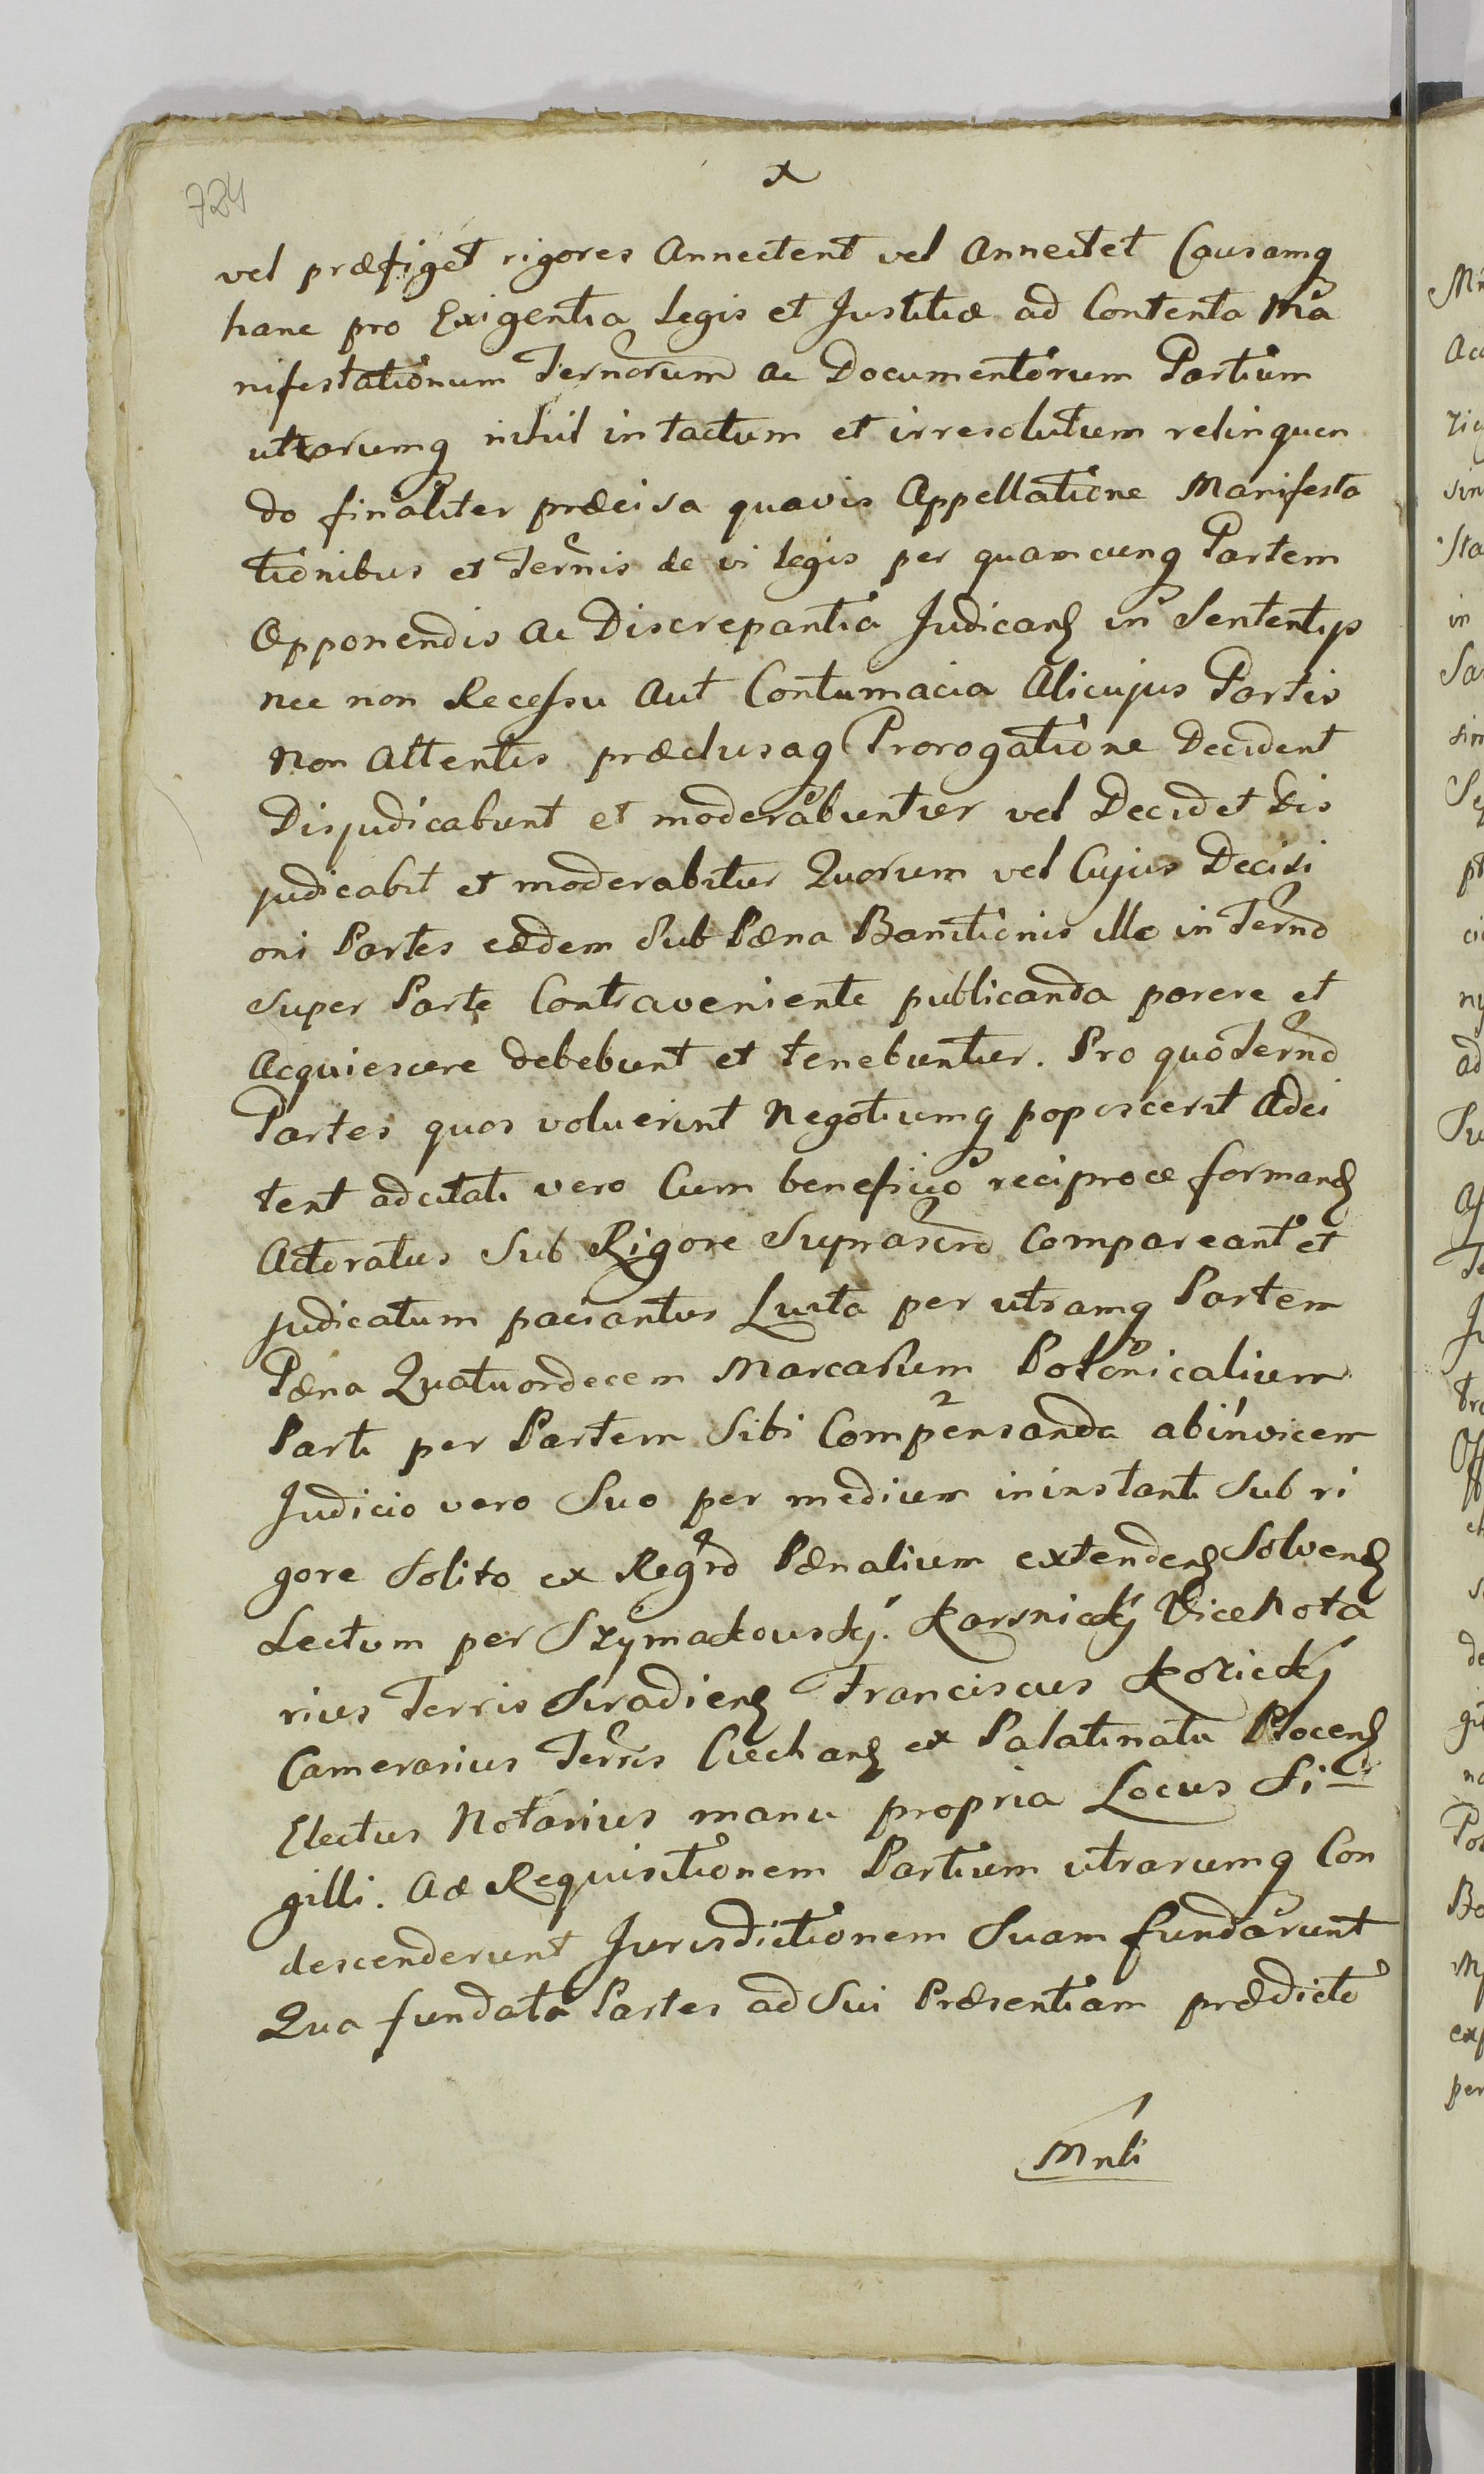 724
x
vel præfiget rigores Annectent vel Annectet Causamq
hanc pro Exigentia Legis et Justitiæ ad Contenta Ma
nifestationum Ternorum ac Documentorum Partium
utrarumq nihil intactum et irresolutum relinquen
do finaliter præcisa quavis Appellatione Manifesta
tionibus et Ternis de vi legis per quamcunq Partem
Opponendis ac Discrepantia Judican in Sententijs
nec non Recessu Aut Contumacia Alicujus Partis
Non Attentis præclusaq Prorogatione Decident
Disjudicabunt et moderabuntur vel Decidet Dis
judicabit et moderabitur Quorum vel Cujus Decisi
oni Partes eædem Sub Pæna Banitionis illo in Terno
super Parte Contraveniente publicanda parere et
Acquiescere debebunt et tenebuntur. Pro quo Terno
Partes quos voluerint Negotiumq poposcerit Adci
tent adcitati vero Cum beneficio reciproce forman
Actoratus Sub Rigore Suprascro Compareant et
judicatum paciantur Luita per utramq Partem
Pæna Quatuordecem Marcarum Polonicalium
Parti per Partem Sibi Compensanda abinvicem
Judicio vero Suo per medium ininstanti Sub ri
gore Solito ex Regro Pænalium extenden Solven
Lectum per Szymakowskÿ. Karsnickÿ Vice Nota
rius Terris Siradien Franciscus Kozickÿ
Camerarius Terris Ciechan ex Palatinatu Plocen
Electus Notarius manu propria Locus Si-
gilli. Ad Requisitionem Partium utrarumq Con
descenderunt Jurisdictionem Suam fundarunt
Qua fundata Partes ad Sui Præsentiam prædicto
Mnli